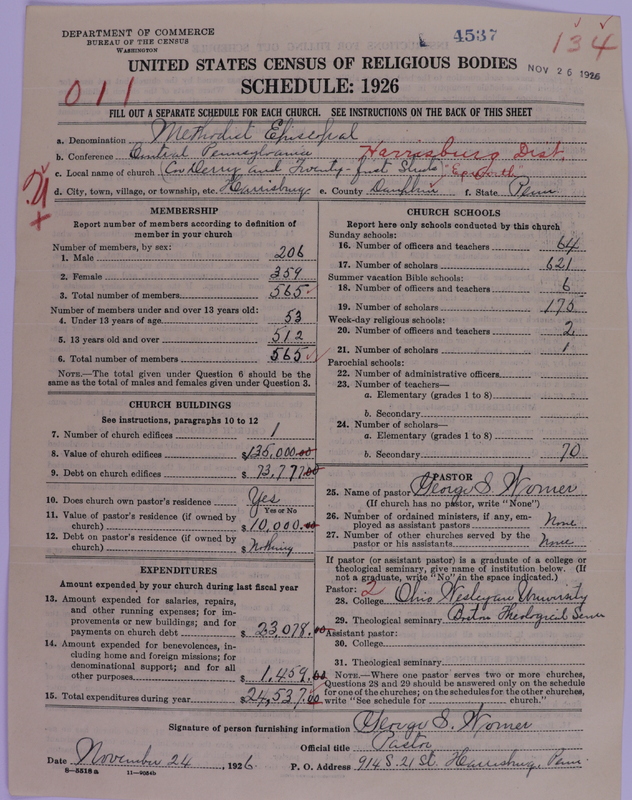 4537
134
DEPARTMENT OF COMMERCE
BUREAU OF THE CENSUS
WASHINGTON
NOV 26 1926
UNITED STATES CENSUS OF RELIGIOUS BODIES
SCHEDULE: 1926
011
FILL OUT A SEPARATE SCHEDULE FOR EACH CHURCH. SEE INSTRUCTIONS ON THE BACK OF THIS SHEET
a. Denomination Methodist Episcopal
b. Conference Central Pennsylvania Harrisburg Dist.
c. Local name of church Cor Derry and Twenty-first Sts Epworth
d. City, town, village, or township, etc. Harrisburg e. County Dauphin f. State Penn
MEMBERSHIP
Report number of members according to definition of
member in your church
Number of members, by sex:
1. Male 206
2. Female 359
3. Total number of members 565
Number of members under and over 13 years old:
4. Under 13 years of age 53
5. 13 years old and over 512
6. Total number of members 565
NOTE.—The total given under Question 6 should be
same as the total of males and females given under Question 3.
CHURCH BUILDINGS
See instructions, paragraphs 10 to 12
7. Number of church edifices 1
8. Value of church edifices $135,000.00
9. Debt on church edifices $73,777.00
10. Does church own pastor's residence Yes
Yes or No
11. Value of pastor's residence (if owned by
church) $10,000.00
12. Debt on pastor's residence (if owned by
church) $Nothing
EXPENDITURES
Amount expended by your church during last fiscal year
13. Amount expended for salaries, repairs,
and other running expenses; for im-
provements or new buildings; and for
payments on church debt $23,078.00
14. Amount expended for benevolences, in-
cluding home and foreign missions; for
denominational support; and for all
other purposes 1,459.00
15. Total expenditures during year $24,537.00
CHURCH SCHOOLS
Report here only schools conducted by this church
Sunday schools:
16. Number of officers and teachers 64
17. Number of scholars 621
Summer vacation Bible schools:
18. Number of officers and teachers 6
19. Number of scholars 175
Week-day religious schools:
20. Number of officers and teachers 2
21. Number of scholars 1
Parochial schools:
22. Number of administrative officers
23. Number of teachers—
a. Elementary (grades 1 to 8)
b. Secondary
24. Number of scholars—
a. Elementary (grades 1 to 8)
b. Secondary 70
PASTOR
25. Name of pastor George S. Womer
(If church has no pastor, write "None")
26. Number of ordained ministers, if any, em-
ployed as assistant pastors None
27. Number of other churches served by the
pastor or his assistants None
If pastor (or assistant pastor) is a graduate of a college or
theological seminary, give name of institution below. (If
not a graduate, write "No" in the space indicated.)
Pastor: 2
28. College Ohio Wesleyan University
29. Theological seminary Boston Theological
Assistant pastor:
30. College
31. Theological seminary
NOTE.—Where one pastor serves two or more churches,
Questions 28 and 29 should be answered only on the schedule
for one of the churches; on the schedules for the other churches,
write "See schedule for church."
Signature of person furnishing information George S. Womer
Official title Pastor
Date November 24, 1926. P. O. Address 914 S. 21 St. Harrisburg, Penn.
8—5518a 11—9054b